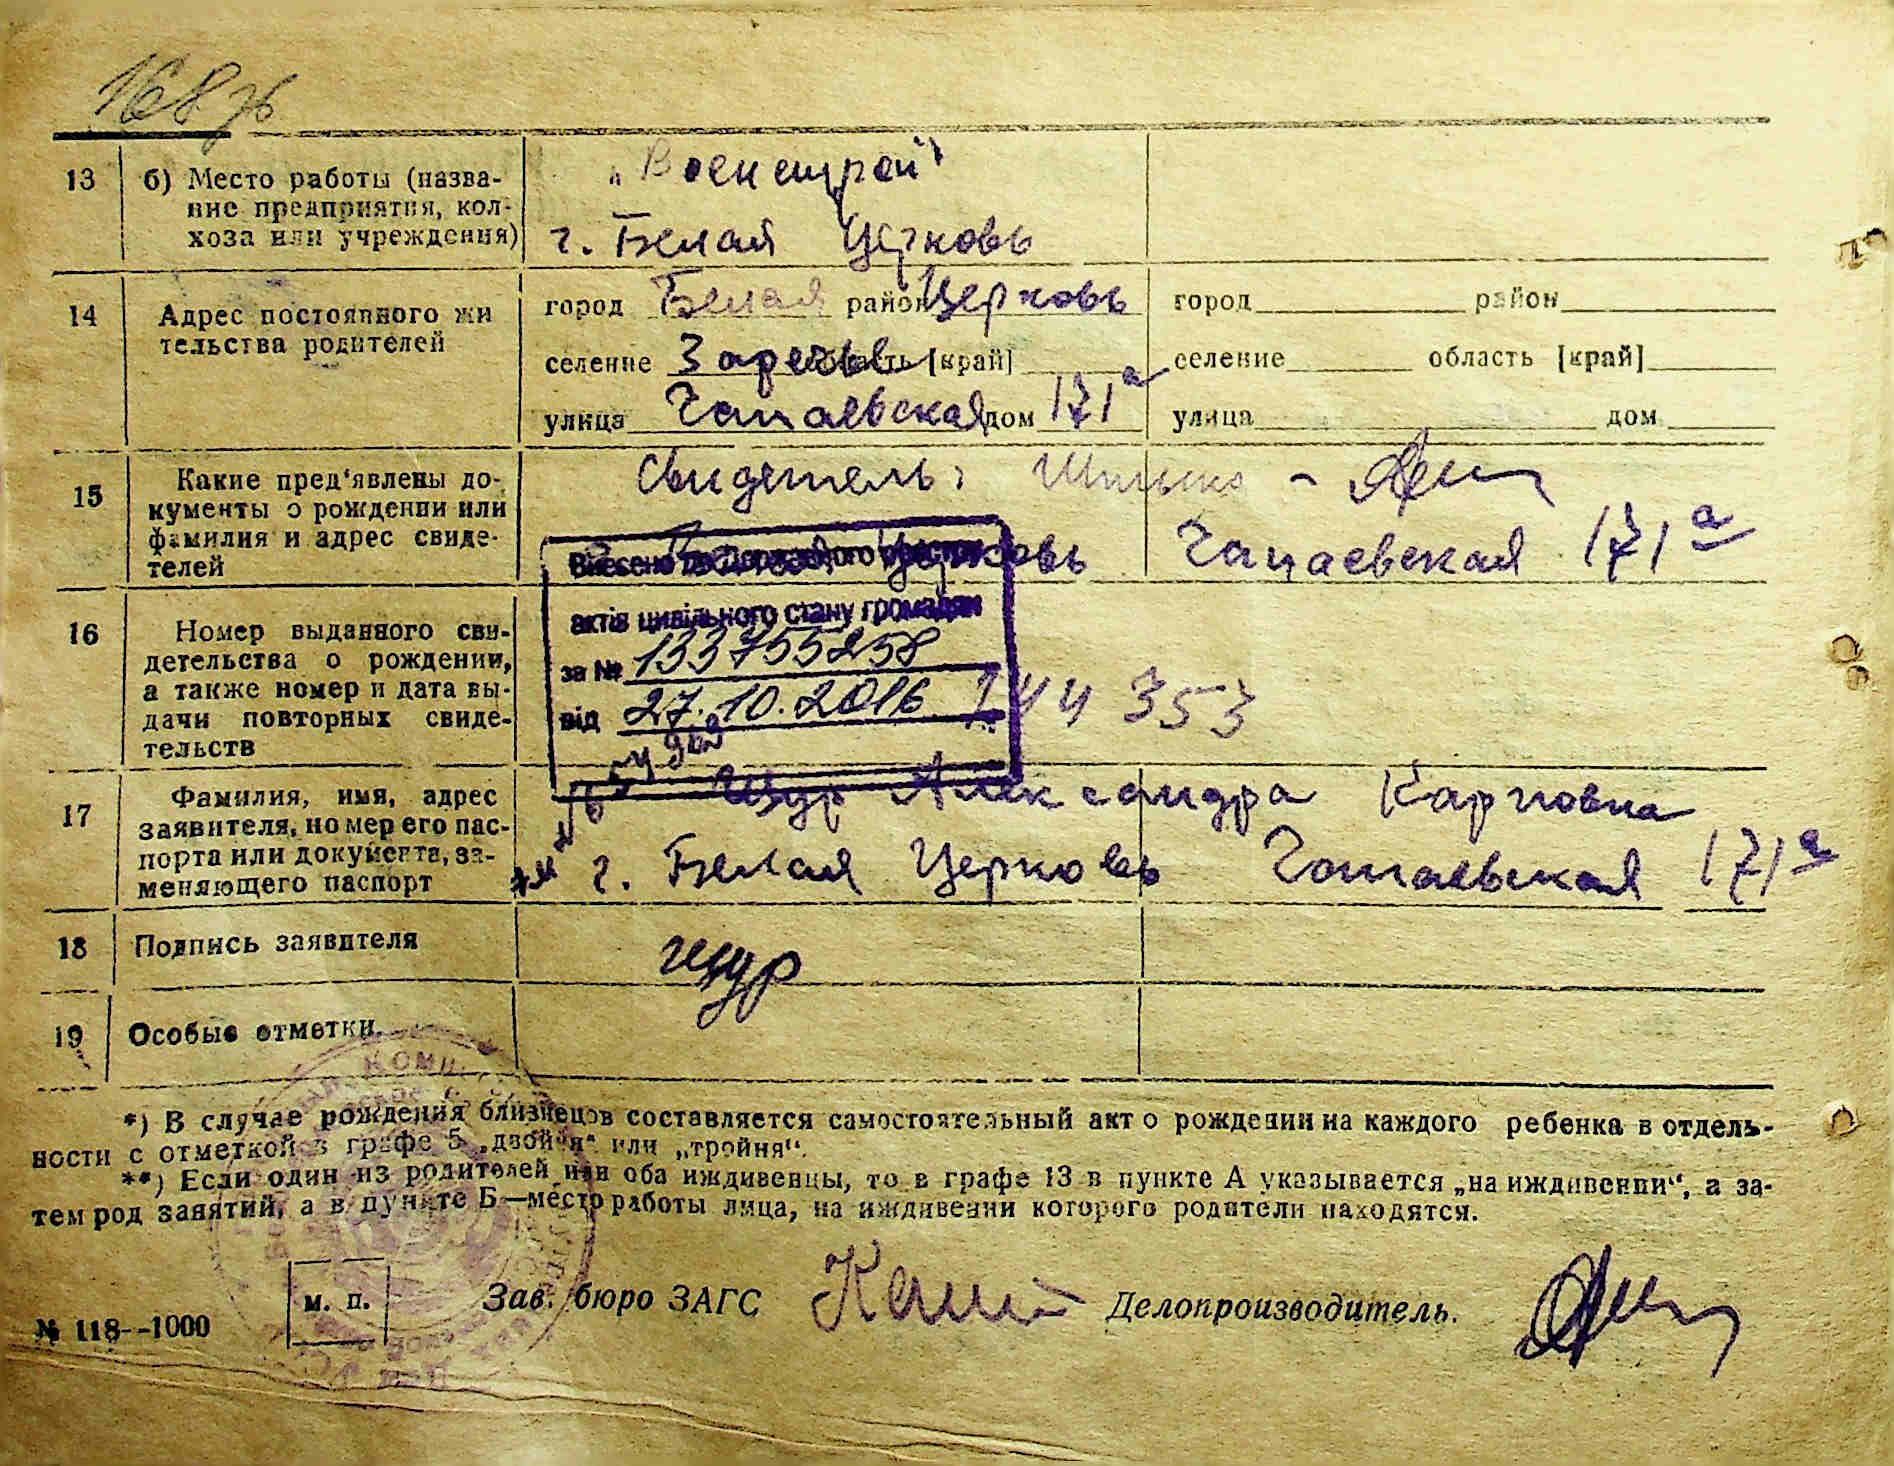 13 б) Место работы (назва-
ние предприятия, кол-
хоза или учреждения)
„Военстрой"
г. Белая Церковь
14 Адрес постоянного жи
тельства родителей
город Белая район Церковь
селение Заречье область [край]
улица Чапаевская дом 171а
город район
селение область [край]
улица дом
15 Какие пред'явлены до-
кументы о рождении или
фамилия и адрес свиде-
телей
Свидетель:
Церковь Чапаевская 171а
Внесено до Державного реєстру
актів цивільного стану громадян
за № 133755258
від 27.10.2016
16 Номер выданного сви-
детельства о рождении,
а также номер и дата вы-
дачи повторных свиде-
тельств
353
17 Фамилия, имя, адрес
заявителя, номер его пас-
порта или документа, за-
меняющего паспорт
Щур Александра Карповна
г. Белая Церковь Чапаевская 171а
18 Подпись заявителя
Щур
19 Особые отметки.
*) В случае рождения близнецов составляется самостоятельный акт о рождении на каждого ребенка в отдель-
ности с отметкой в графе 5 „двойня“ или „тройня“.
**) Если один из родителей или оба иждивенцы, то в графе 13 в пункте А указывается „на иждивении“, а за-
тем род занятий, а в пункте Б—место работы лица, на иждивении которого родители находятся.
м. п.
Зав. бюро ЗАГС Делопроизводитель.
№ 118--1000